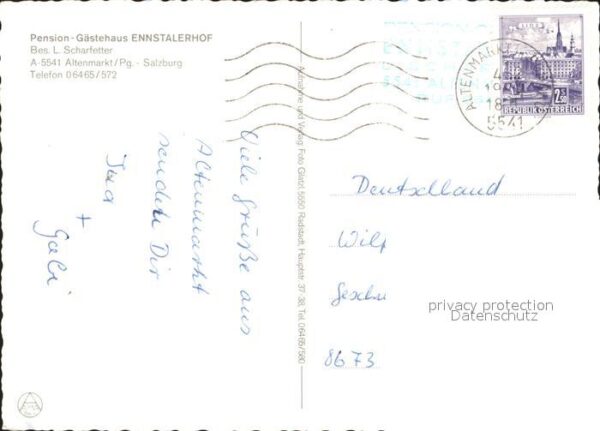 Pension - Gästehaus ENNSTALERHOF
Bes. L. Scharfetter
A-5541 Altenmarkt/Pg. - Salzburg
Telefon 06465/572
Viele Grüße aus
Altenmarkt
senden Dir
+
Gabi
Aufnahme und Verlag: Foto Glabtl, 5550 Radstadt, Hauptstr. 37-38, Tel. 06465/580
ALTENMARKT
18
5541
2.50
REPUBLIK ÖSTERREICH
Deutschland
Wilf
8673
privacy protection
Datenschutz